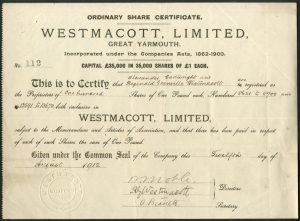 ORDINARY SHARE CERTIFICATE.
WESTMACOTT, LIMITED,
GREAT YARMOUTH.
Incorporated under the Companies Acts, 1862-1900.
CAPITAL £35,000 IN 35,000 SHARES OF £1 EACH.
No. 112
This is to Certify that
Westmacott registered as
the Proprietors of One thousand Shares of One Pound each, Numbered
both inclusive in
WESTMACOTT, LIMITED,
subject to the Memorandum and Articles of Association, and that there has been paid in respect
of each of such Shares the sum of One Pound
Given under the Common Seal of the Company this Twelfth day of
August 1912
Directors
Secretary